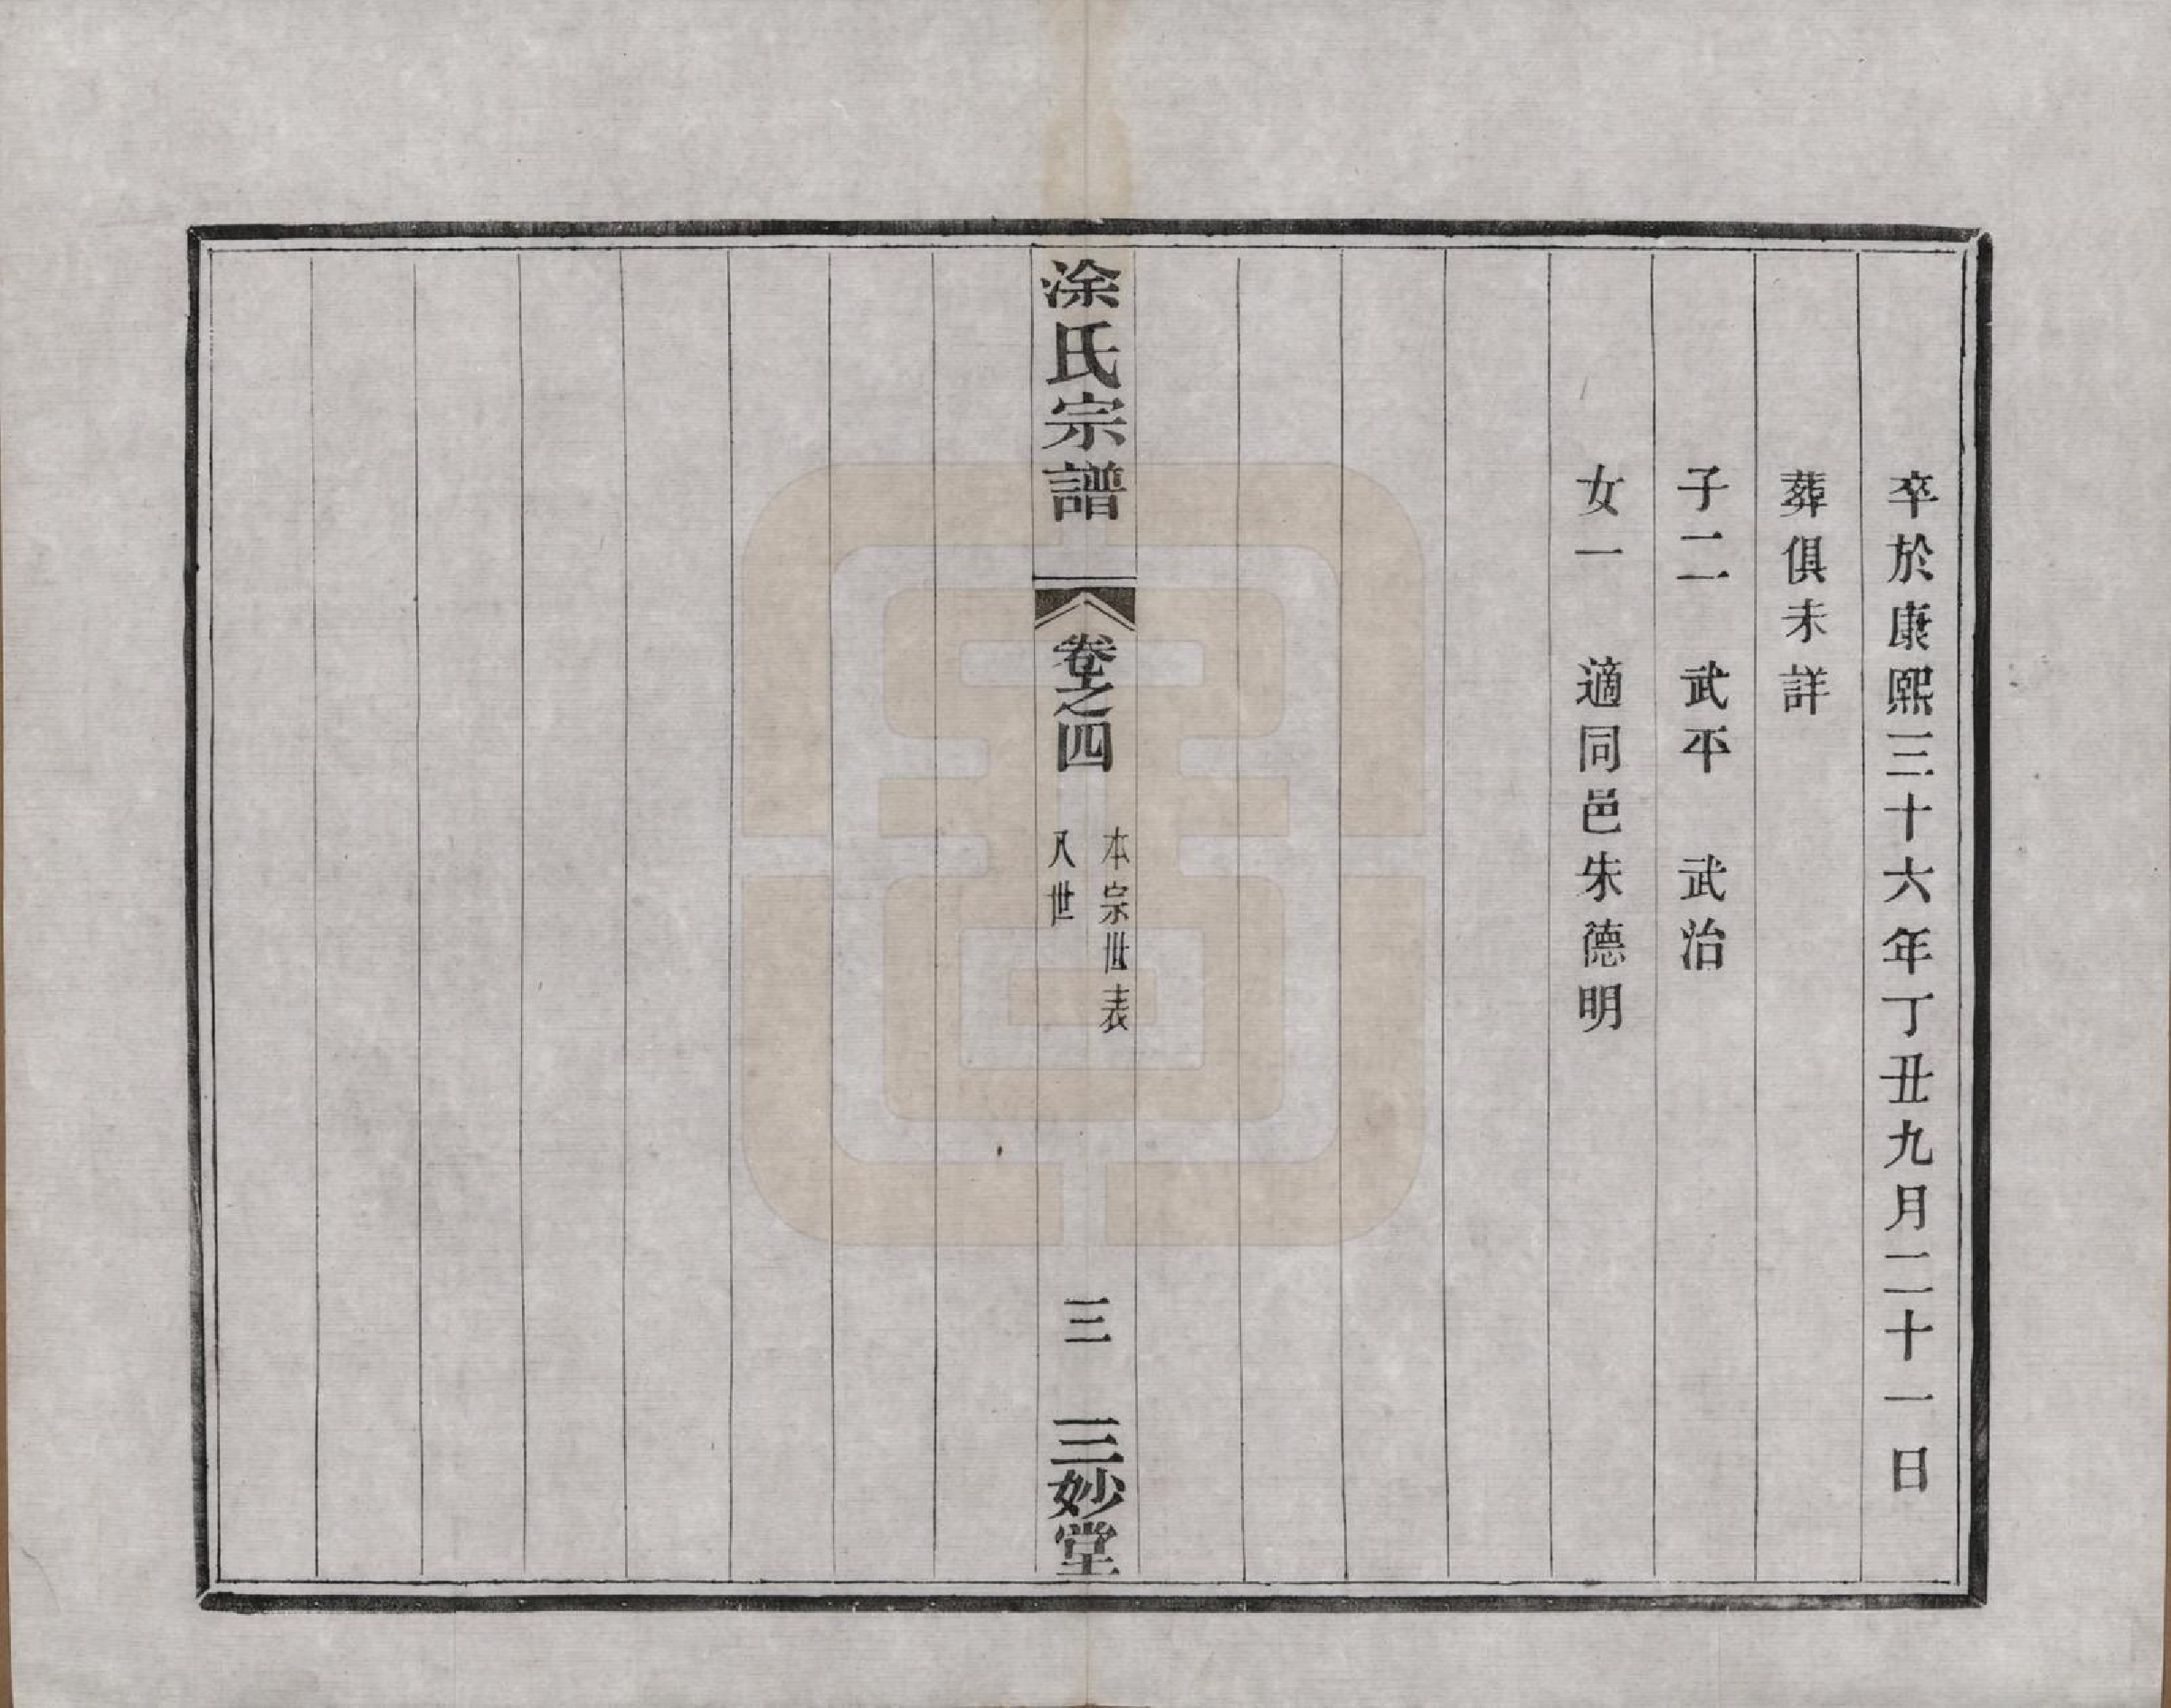 卒於康熙三十六年丁丑九月二十一日
葬俱未詳
子二　武平　武治
女一　適同邑朱德明
涂氏宗譜
卷之四
本宗世表
八世
三
三妙堂